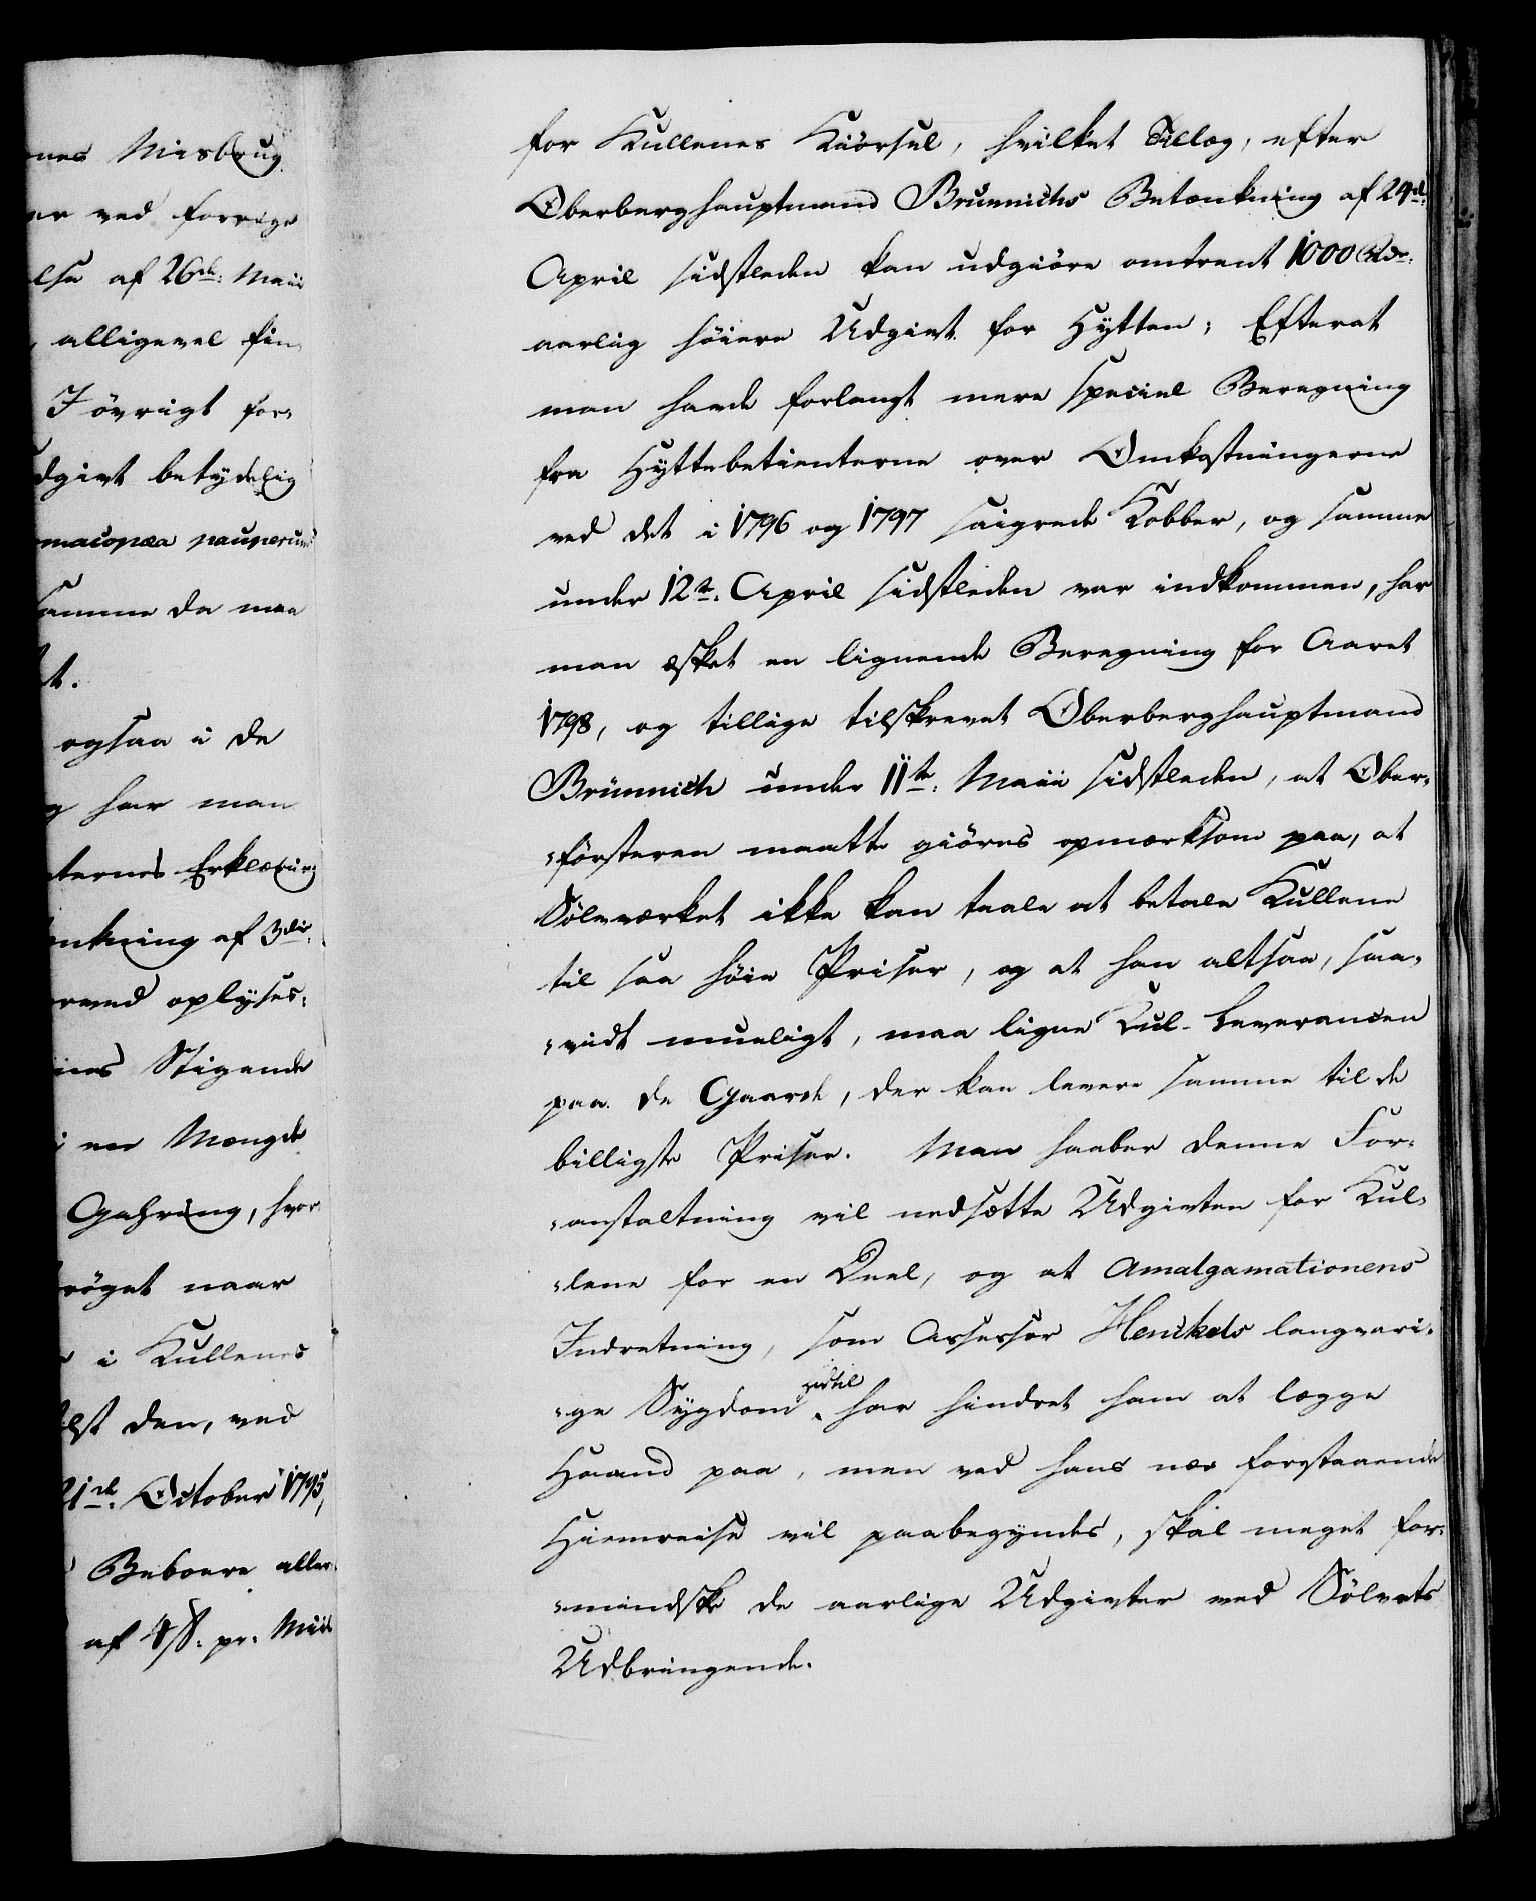 nes Misbrug
er ved forrige
else af 26de: Maii
, alligevel fin-
I övrigt for-
dgivt betydelig
macopæa pauperum
samme da maa
t.
ogsaa i de
g har man
ternes Erklæring
enkning af 3die:
rved oplyses:
Stigende
i en Mængde
Gahring, hvor
röget naar
i Kullenes
lst den, ved
21de: October 1795,
Beboere aller-
af 4 ß. pr. Miil
for Kullenes Kiörsel, hvilket Tillæg, efter
Oberberghauptmand Brünnichs Betænkning af 24de:
April sidstleden kan udgiöre omtrent 1000 Rdr:
aarlig höiere Udgivt for Hytten; Efterat
man havde forlangt mere speciel Beregning
fra Hyttebetienterne over Omkostningerne
ved det i 1796 og 1797 saigrede Kobber, og samme
under 12te: April sidstleden var indkommen, har
man æsket en lignende Beregning for Aaret
1798, og tillige tilskrevet Oberberghauptmand
Brünnich under 11te: Maii sidstleden, at Ober-
-försteren maatte giöres opmærksom paa, at
Sölvværket ikke kan taale at betale Kullene
til saa höie Priser, og at han altsaa, saa-
-vidt mueligt, maa ligne Kul-Leverancen
paa de Gaarde, der kan levere samme til de
billigste Priser. Man haaber denne For-
-anstaltning vil nedsætte Udgivten for Kul-
-lene for en Deel, og at Amalgamationens
Indretning, som Assessor Henckels langvari-
-ge Sygdom hidtil har hindret ham at lægge
Haand paa, men ved hans nær forstaaende
Hiemreise vil paabegyndes, skal meget for-
-mindske de aarlige Udgivter ved Sölvets
Udbringende.